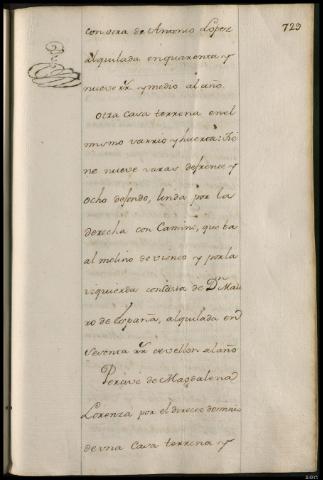 729
con otra de Antonio Lopez
alquilada en quarenta y
nueve rr. y medio al año.
Otra Casa terrena en el
mismo varrio, y huerta: Tie
ne nueve varas de frente y
ocho de fondo, linda por la
derecha con Camino, que ba
al molino de viento y por la
izquierda con Casa de Dn. Mau
ro de España, alquilada en
sesenta rr. de vellon al año
Percive de Magdalena
Lorenza por el directo dominio
de vna Casa terrena y